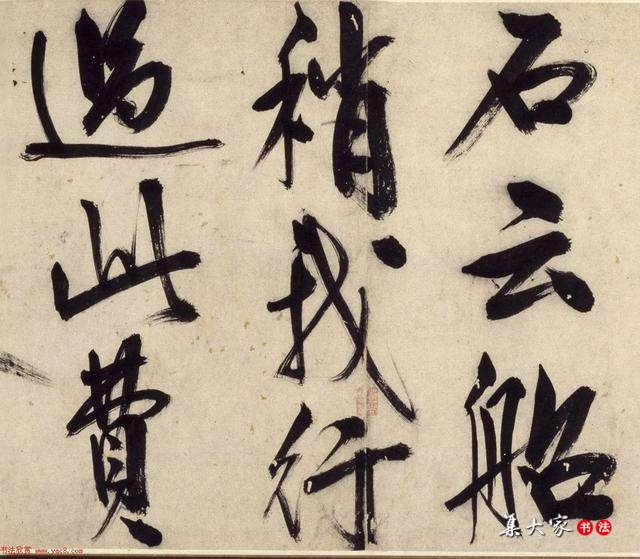 石云船
稍我行
過此費
集大家 书法
书法欣赏 www.yac8.com